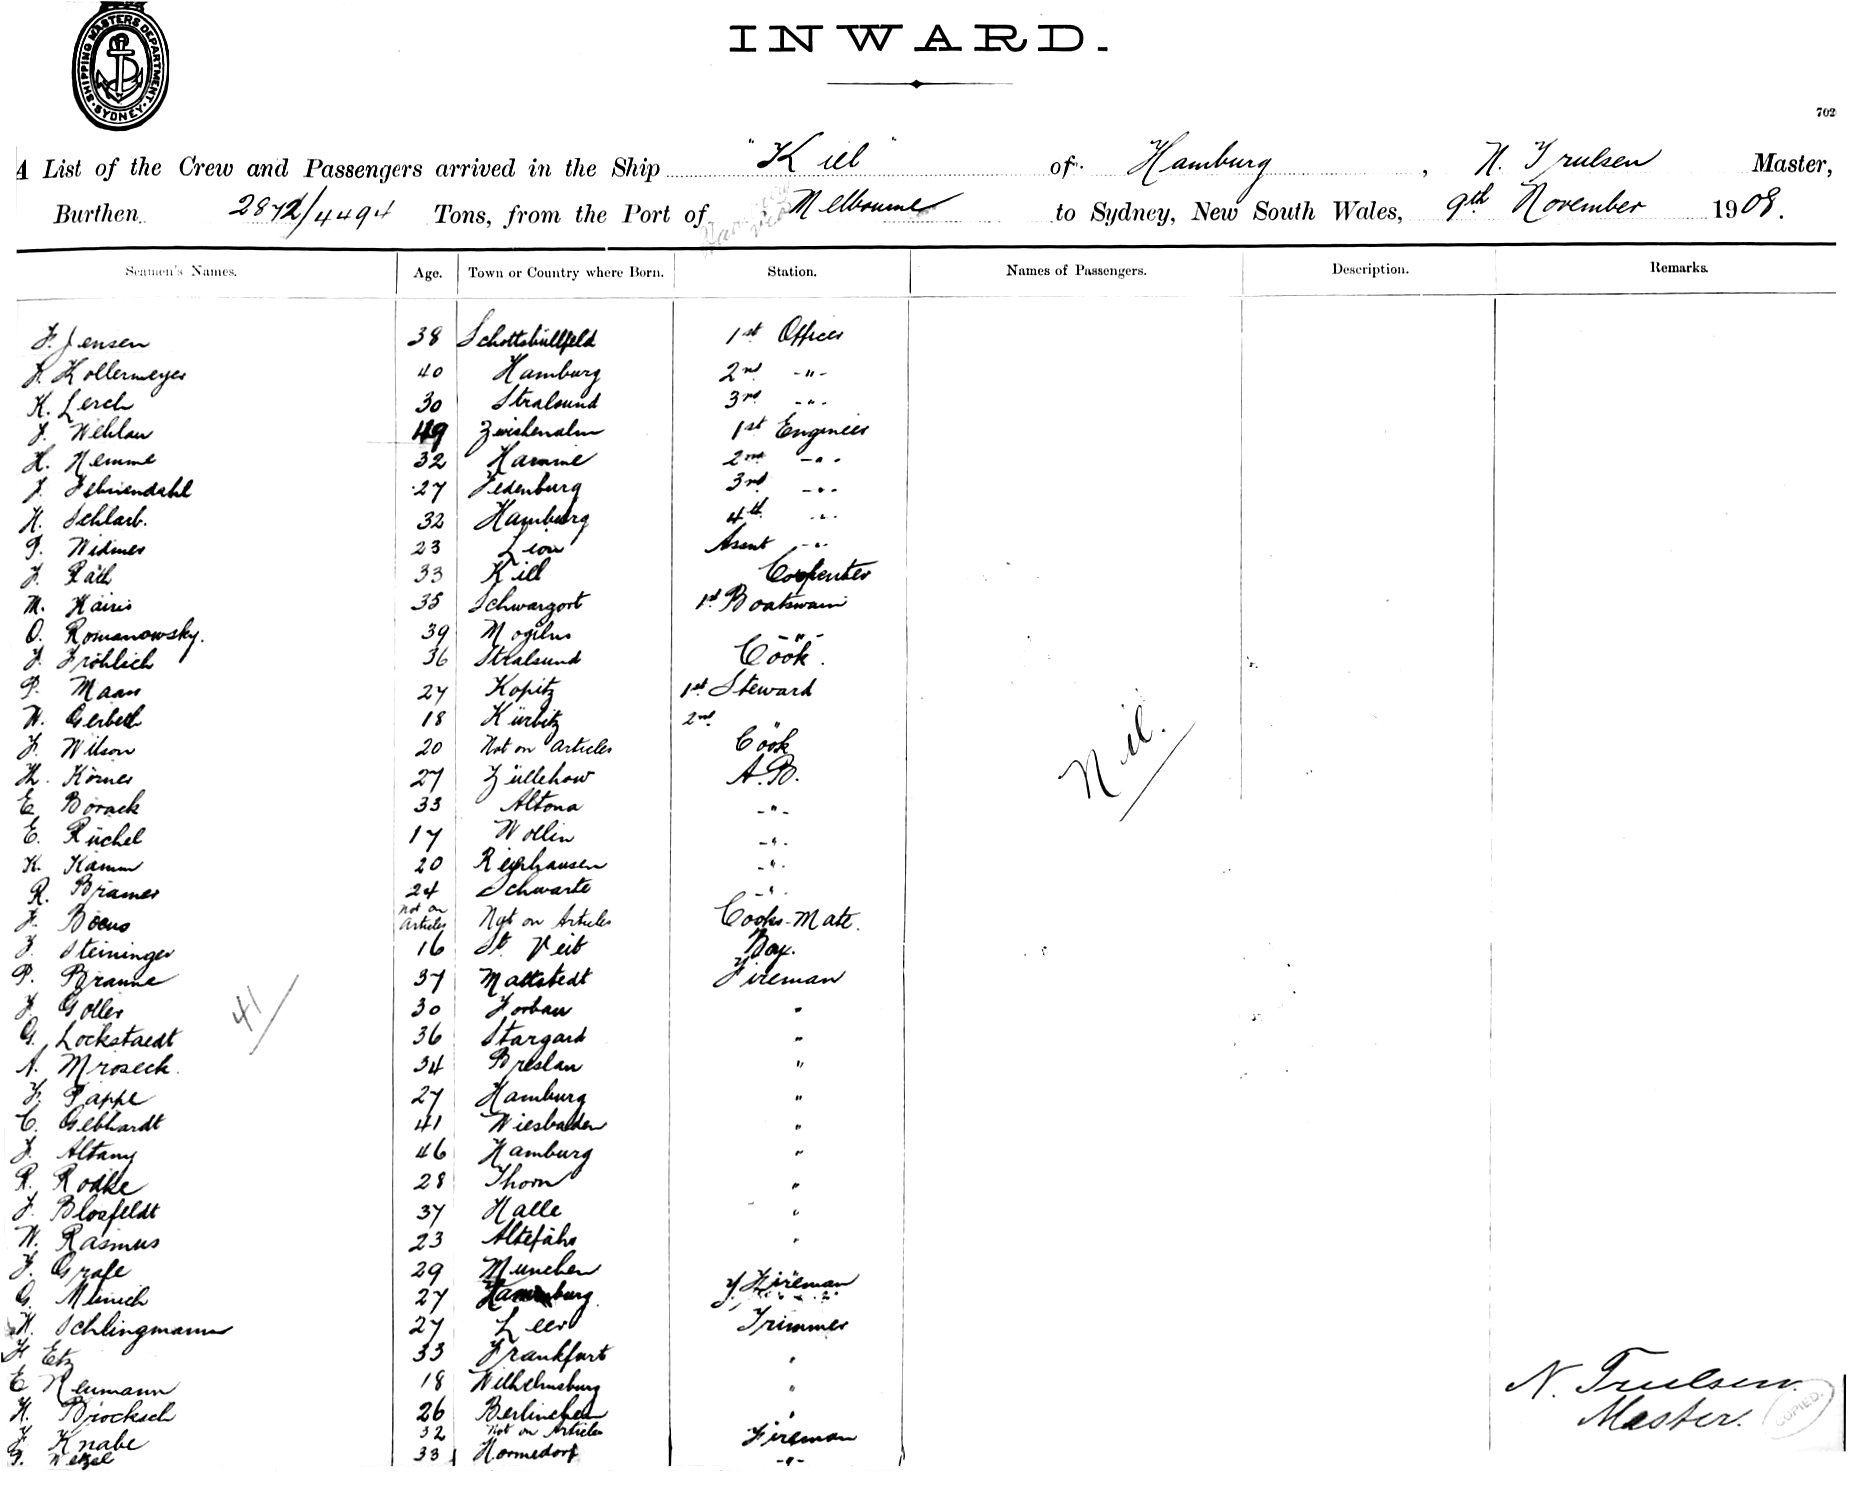 SHIPPING MASTERS DEPARTMENT. SYDNEY.
INWARD.
702
A List of the Crew and Passengers arrived in the Ship "Kiel" of Hamburg, N. Trulsen Master,
Burthen 2872/4494 Tons, from the Port of Melbourne to Sydney, New South Wales, 9th November 1908.
Seamen's Names. Age. Town or Country where Born. Station. Names of Passengers. Description. Remarks.
F. Jensen 38 Schottsbüllfeld 1st Officer
Kollermeyer 40 Hamburg 2nd -"-
K. Lerch 30 Stralsund 3rd -"-
J. Wehlau 49 Zwishenahn 1st Engineer
H. Hemme 32 Hamme 2nd -"-
27 3rd -"-
H. Schlarb. 32 Hamburg 4th -"-
P. Widmer 23 Assnt -"-
J. Räth 33 Kiel Carpenter
M. Kairis 35 Schwarzort 1st Boatswain
O. Romanowsky. 39 Mogilno -"-
F. Fröhlich 36 Stralsund Cook.
P. Maass 27 Kopitz 1st Steward
W. Gerbeth 18 Kürbitz 2nd
F. Wilson 20 Not on Articles Cook
Th. Körner 27 Züllchow A.B.
E. Borack 33 Altona -"-
E. Rüchel 17 Wollin -"-
K. Kamm 20 -"-
R. Bramer 24 Schwarte -"-
Not on Articles Not on Articles Cooks-Mate.
Steininger 16 St. Veit Boy.
P. Braune 37 Mattstedt Fireman
J. Goller 30 Forbau "
G. Lockstaedt 36 Stargard "
A. Mroseck. 34 Breslau "
F. Pappe 27 Hamburg "
C. Gebhardt 41 Wiesbaden "
J. Altany 46 Hamburg "
R. Radke 28 Thorn "
F. Blosfeldt 37 Halle "
W. Rasmus 23 Altefähr "
F. Grafe 29 Munchen "
G. Münich 27 Hamburg. Fireman
H. Schlingmann 27 Leer Trimmer
H. Etz 33 Frankfurt "
E. Neumann 18 Wilhelmsburg "
H. Brocksch 26 Berlinchen "
F. Knabe 32 Not on Articles Fireman
Wetzel 33 -"-
Nil.
41
N. Trulsen.
Master.
COPIED.